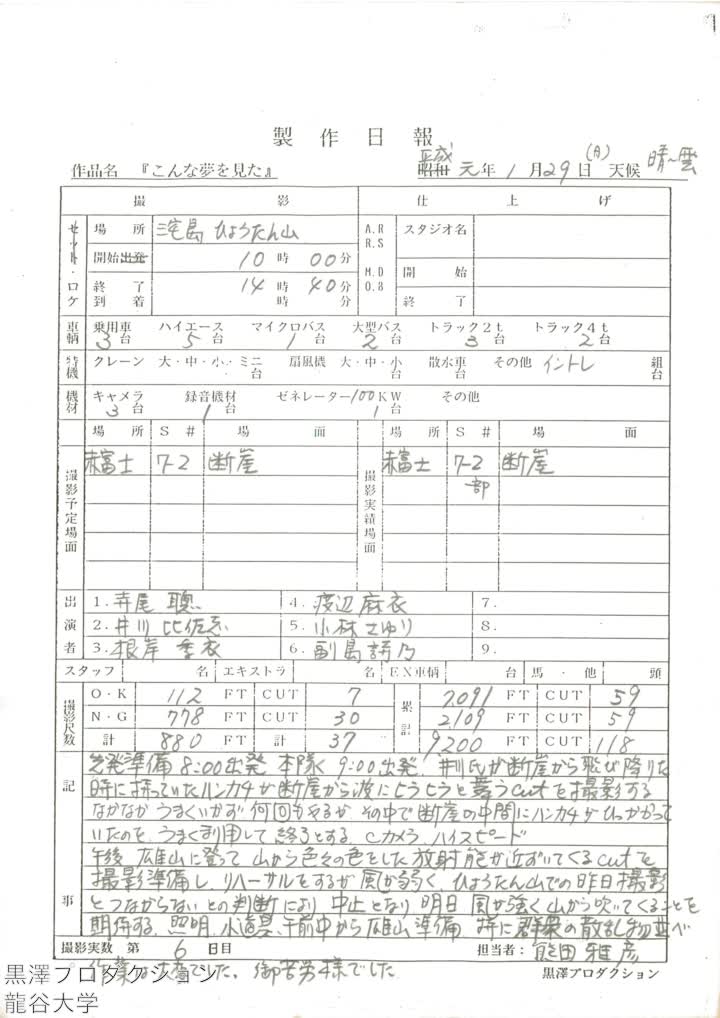 製作日報
作品名 『こんな夢を見た』 昭和 平成 元年 1月29日 (日) 天候 晴〜曇
撮影 仕上げ
セット・ロケ 場所 三宅島 ひょうたん山 A.R R.S M.D O.8 スタジオ名
開始 出発 10時00分 開始
終了 到着 14時40分 時 分 終了
車輌 乗用車 3台 ハイエース 5台 マイクロバス 1台 大型バス 2台 トラック2t 3台 トラック4t 2台
特機 クレーン 大・中・小・ミニ 台 扇風機 大・中・小 台 散水車 台 その他 イントレ 組 台
機材 キャメラ 3台 録音機材 1台 ゼネレーター 100KW 1台 その他
場所 S# 場面 場所 S# 場面
撮影予定場面 赤富士 7-2 断崖 撮影実績場面 赤富士 7-2 一部 断崖
出演者 1. 寺尾 聰 4. 渡辺麻衣 7.
2. 井川 比佐志 5. 小林さゆり 8.
3. 根岸 季衣 6. 副島詩乃 9.
スタッフ 名 エキストラ 名 EX車輌 台 馬・他 頭
撮影尺数 O・K 112 FT CUT 7 累計 7091 FT CUT 59
N・G 778 FT CUT 30 2109 FT CUT 59
計 880 FT 計 37 9200 FT CUT 118
記事 先発準備 8:00出発 本隊 9:00出発. 井川氏が断崖から飛び降りた
時に持っていたハンカチが断崖から波にヒラヒラと舞うcutを撮影する
なかなかうまくいかず 何回もやるが その中で断崖の中間にハンカチがひっかかって
いたので うまく利用して終了とする Cカメラ ハイスピード
午後 雄山に登って 山から色々の色をした放射能が近ずいてくるcutを
撮影準備し、リハーサルをするが 風が弱く、ひょうたん山での昨日撮影
とつながらないとの判断により 中止となり 明日 風が強く山から吹いてくることを
期待する. 照明、小道具、午前中から雄山準備 特に群衆の散乱物並べ
作業は大変でした. 御苦労様でした
撮影実数 第 6 日目 担当者: 熊田雅彦
黒澤プロダクション
黒澤プロダクション
龍谷大学